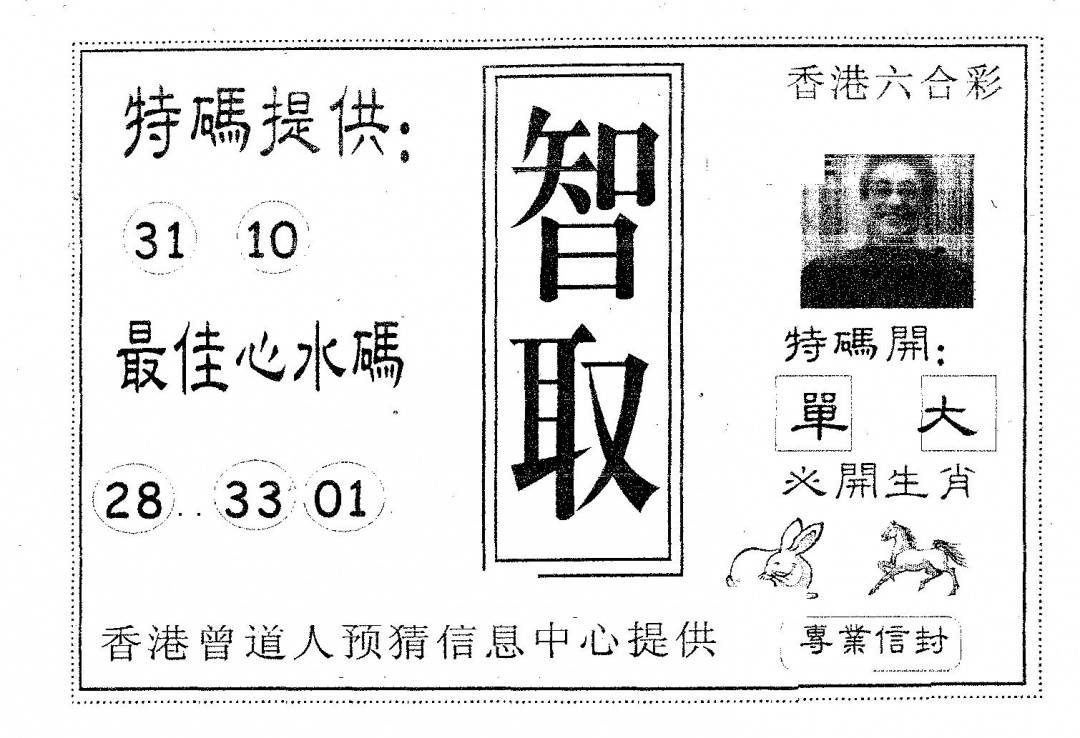 特碼提供：
31 10
最佳心水碼
28..33 01
智取
香港六合彩
特碼開：
單 大
必開生肖
香港曾道人预猜信息中心提供
專業信封